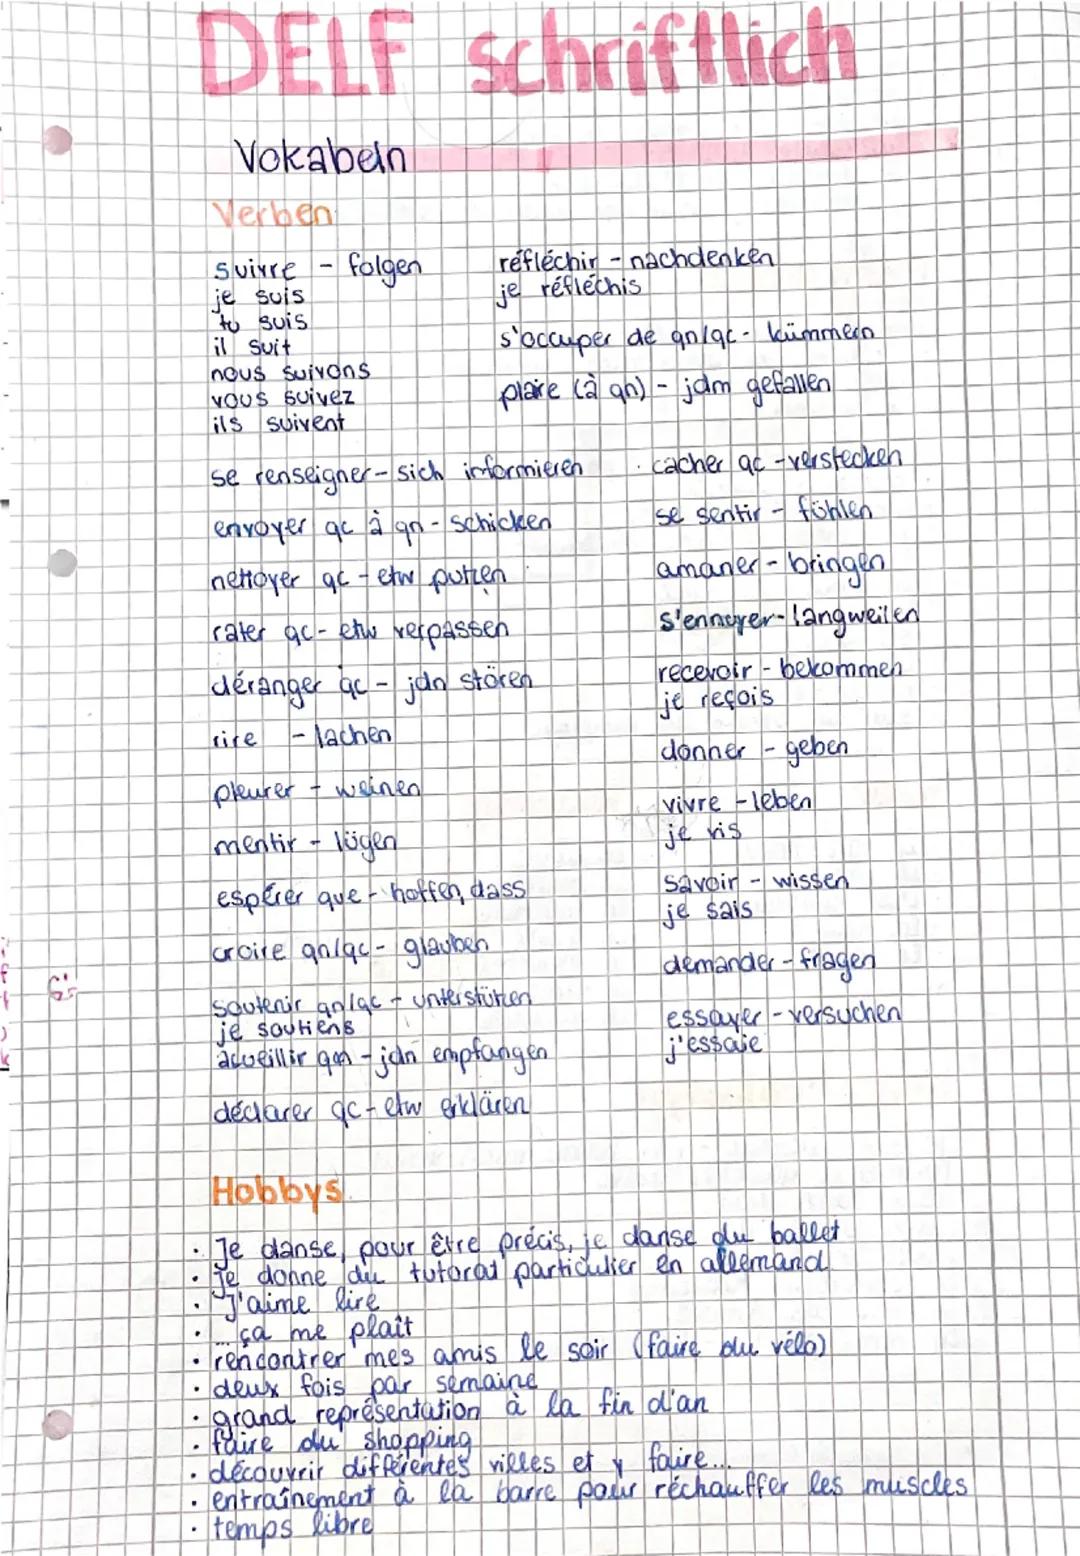 DELF schriftlich
Vokabeln
Verben
suivre - folgen
je suis
tu suis
il suit
nous suivons
vous suivez
ils suivent
réfléchir - nachdenken
je réfléchis
s'occuper de qn/qc - kümmern
plaire (à qn) - jdm gefallen
se renseigner - sich informieren
envoyer qc à qn - schicken
nettoyer qc - etw putzen
rater qc - etw verpassen
déranger qc - jdn stören
rire - lachen
pleurer - weinen
mentir - lügen
espérer que - hoffen, dass
croire qn/qc - glauben
soutenir qn/qc - unterstützen
je soutiens
accueillir qn - jdn empfangen
déclarer qc - etw erklären
cacher qc - verstecken
se sentir - fühlen
amaner - bringen
s'ennuyer - langweilen
recevoir - bekommen
je reçois
donner - geben
vivre - leben
je vis
savoir - wissen
je sais
demander - fragen
essayer - versuchen
j'essaie
Hobbys
· Je danse, pour être précis, je danse du ballet
· je donne du tutorat particulier en allemand
· J'aime lire
· ... ça me plaît
· rencontrer mes amis le soir (faire du vélo)
· deux fois par semaine
· grand représentation à la fin d'an
· faire du shopping
· découvrir différentes villes et y faire...
· entraînement à la barre pour réchauffer les muscles
· temps libre